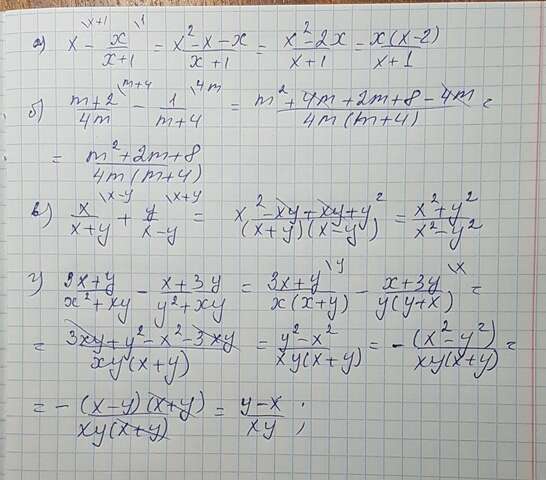 а) x - x/(x+1) \x+1 \1 = (x² - x - x)/(x+1) = (x² - 2x)/(x+1) = x(x-2)/(x+1)
б) (m+2)/4m \m+4 - 1/(m+4) \4m = (m² + 4m + 2m + 8 - 4m)/(4m(m+4)) =
= (m² + 2m + 8)/(4m(m+4))
в) x/(x+y) \x-y + y/(x-y) \x+y = (x² - xy + xy + y²)/((x+y)(x-y)) = (x² + y²)/(x² - y²)
г) (3x+y)/(x² + xy) - (x+3y)/(y² + xy) = (3x+y)/(x(x+y)) \y - (x+3y)/(y(y+x)) \x =
= (3xy + y² - x² - 3xy)/(xy(x+y)) = (y² - x²)/(xy(x+y)) = - (x² - y²)/(xy(x+y)) =
= - (x-y)(x+y)/(xy(x+y)) = (y-x)/(xy) ;